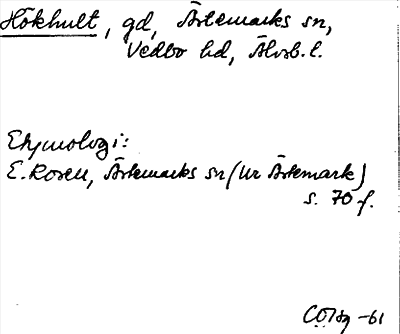 Hökhult, gd, Ärtemarks sn,
Vedbo hd, Älvsb. l.
Etymologi:
E. Rosell, Ärtemarks sn (ur Ärtemark)
s. 70 f.
-61